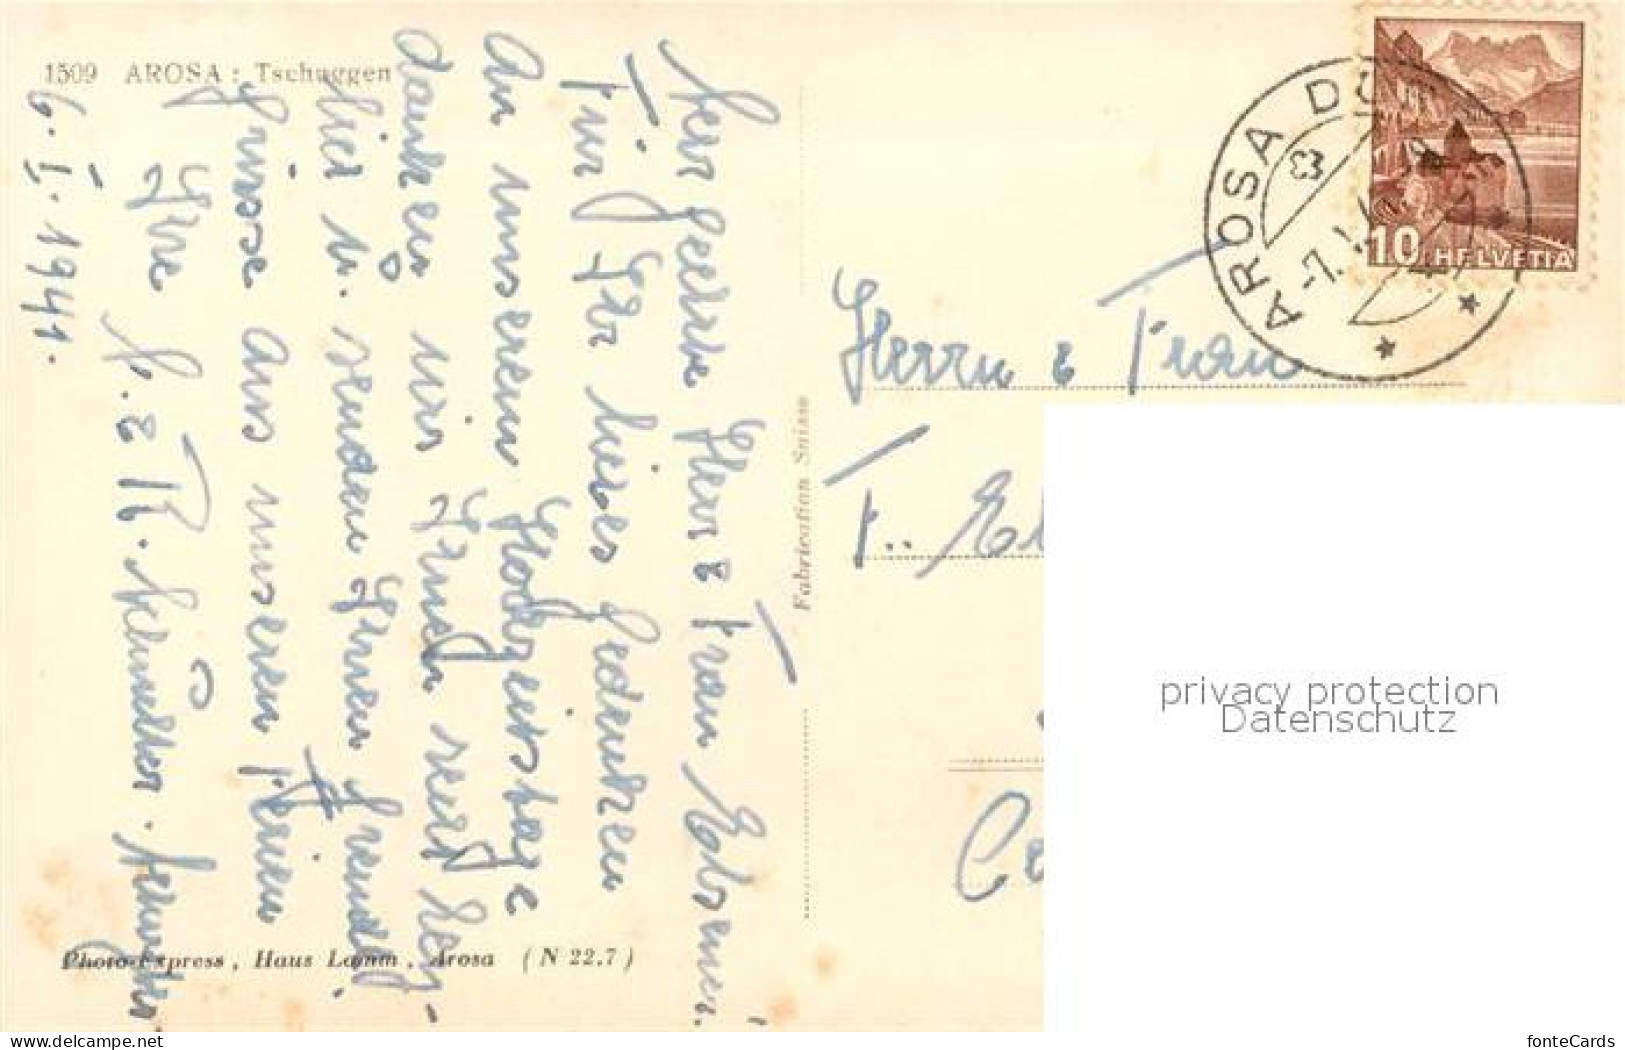 1509 AROSA: Tschuggen
6. I. 1941.
Herr & Frau
Für Ihr liebes Gedenken
An unserem Hochzeitstage
danken wir Ihnen recht herz-
lich u. senden Ihnen freundl.
Grüsse aus unseren Ferien
Ihre
Photo-Express, Haus Lamm, Arosa (N 22.7)
Fabrication Suisse
AROSA DO
-7. I.
10 HELVETIA
Herrn & Frau
privacy protection
Datenschutz
delcampe.net
fonteCards